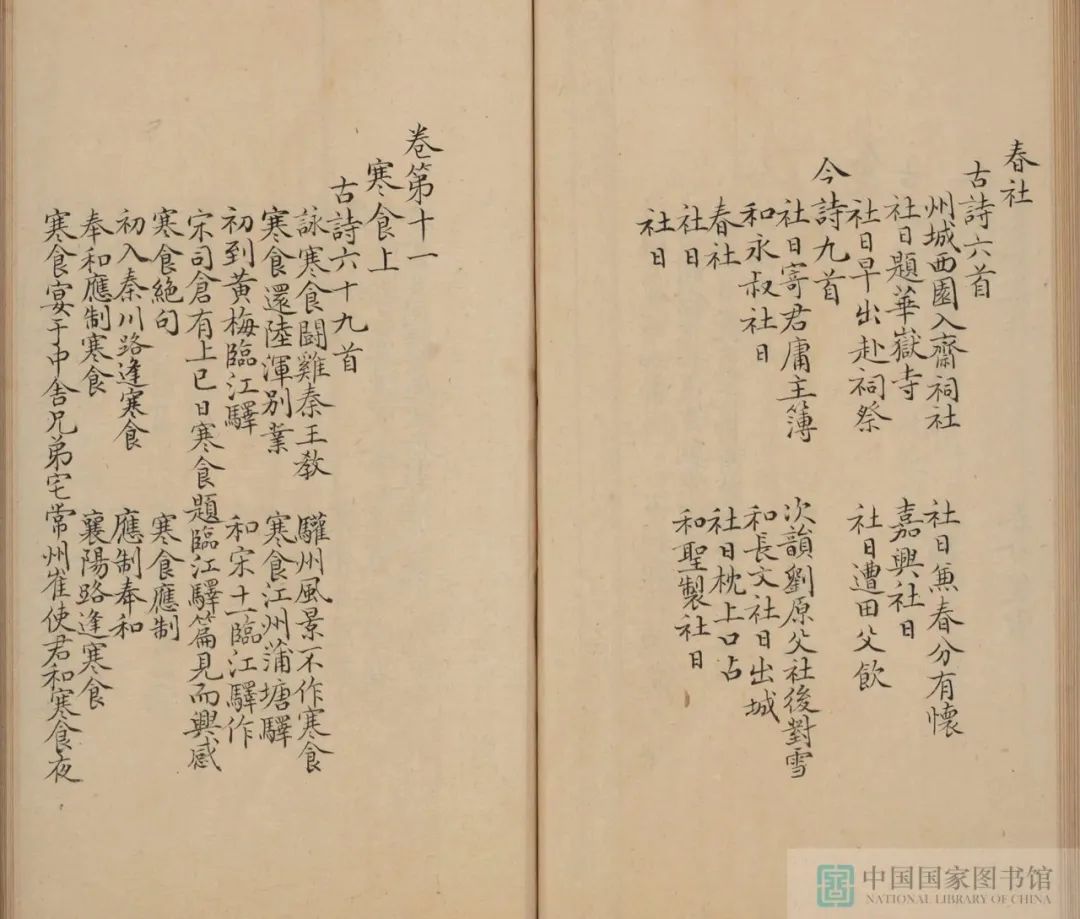 春社
古詩六首
州城西園入齋祠社 社日兼春分有懷
社日題華嶽寺 嘉興社日
社日早出赴祠祭 社日遭田父飲
今詩九首
社日寄君庸主簿 次韻劉原父社後對雪
和永叔社日 和長文社日出城
春社 社日枕上口占
社日 和聖製社日
社日
卷第十一
寒食上
古詩六十九首
詠寒食鬭雞秦王教 驩州風景不作寒食
寒食還陸渾別業 寒食江州蒲塘驛
初到黃梅臨江驛 和宋十一臨江驛作
宋司倉有上巳日寒食題臨江驛篇見而興感
寒食絕句 寒食應制
初入秦川路逢寒食 應制奉和
奉和應制寒食 襄陽路逢寒食
寒食宴于中舍兄弟宅常州崔使君和寒食夜
中国国家图书馆
NATIONAL LIBRARY OF CHINA